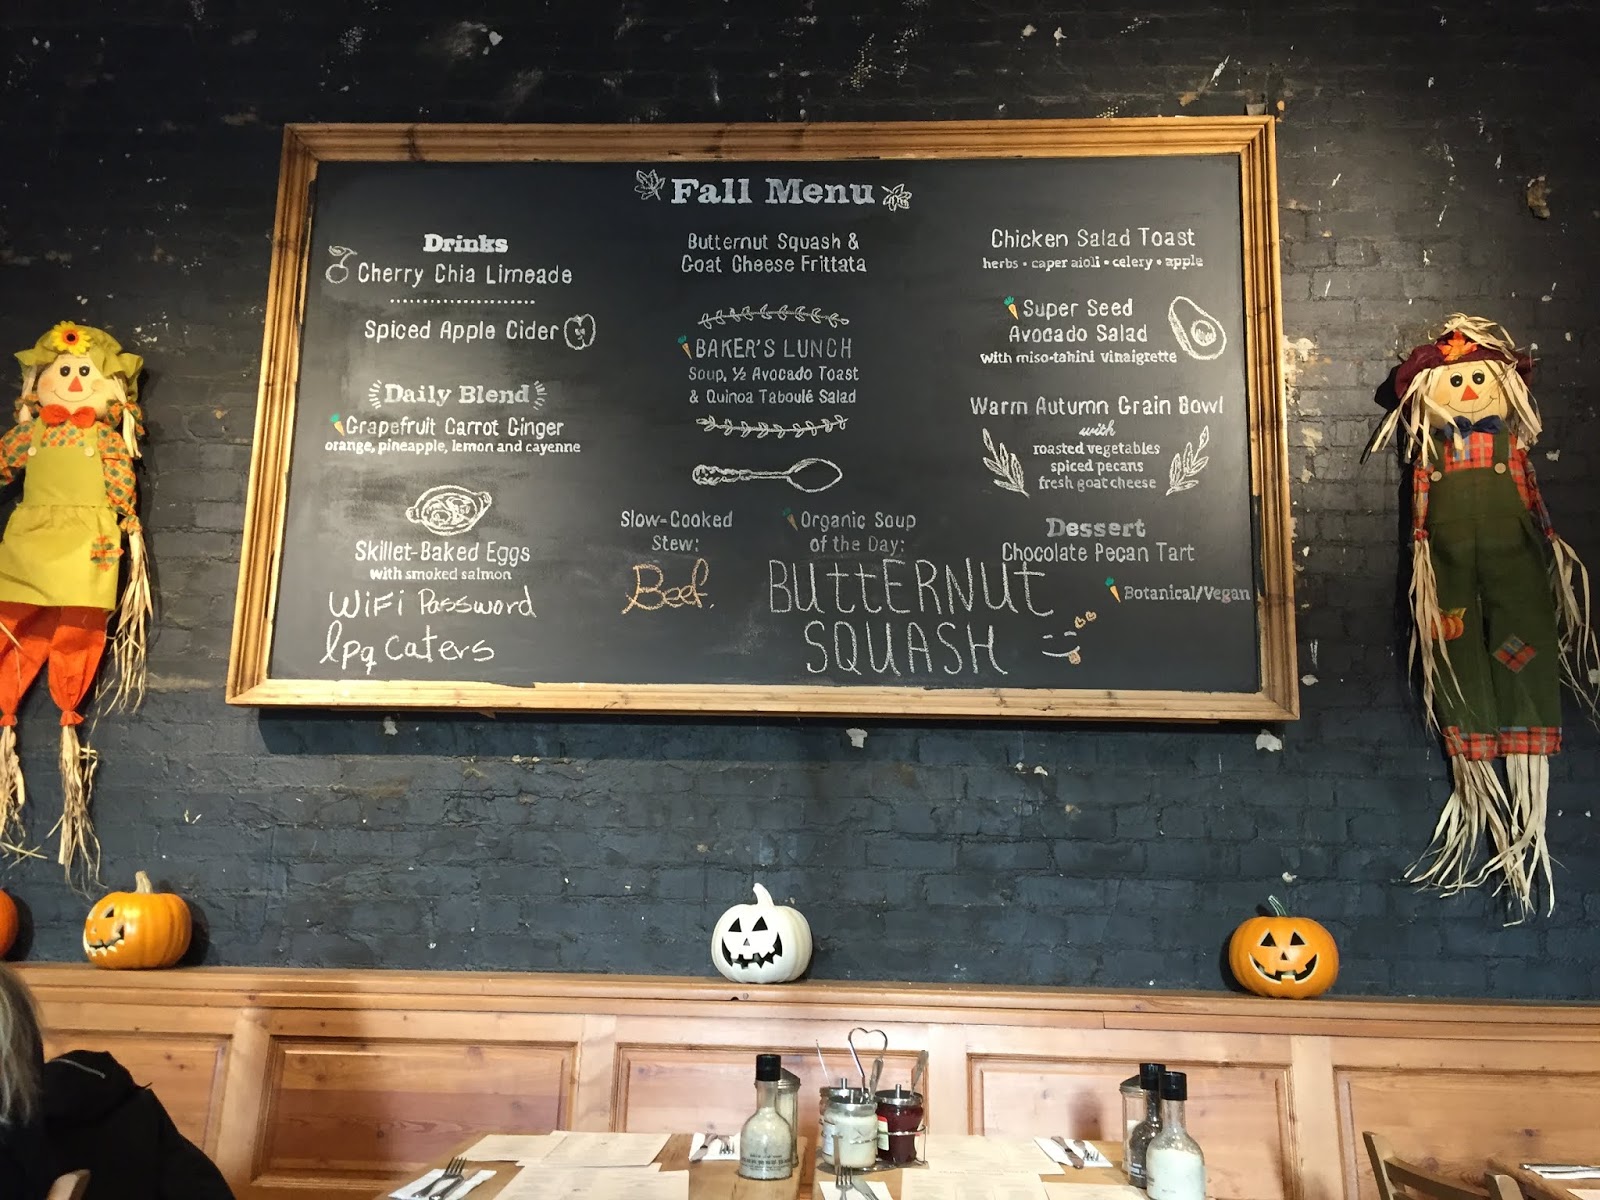 Fall Menu
Drinks
Cherry Chia Limeade
Spiced Apple Cider
Daily Blend
Grapefruit Carrot Ginger
orange, pineapple, lemon and cayenne
Skillet-Baked Eggs
with smoked salmon
WiFi Password
lpq caters
Butternut Squash &
Goat Cheese Frittata
BAKER'S LUNCH
Soup, ½ Avocado Toast
& Quinoa Taboulé Salad
Slow-Cooked
Stew:
Beef.
Organic Soup
of the Day:
BUttERNUt
SQUASH
Chicken Salad Toast
herbs • caper aioli • celery • apple
Super Seed
Avocado Salad
with miso-tahini vinaigrette
Warm Autumn Grain Bowl
with
roasted vegetables
spiced pecans
fresh goat cheese
Dessert
Chocolate Pecan Tart
Botanical/Vegan